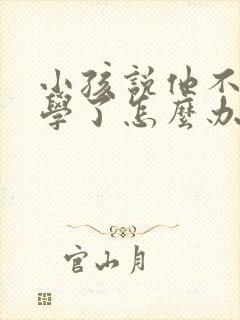 小孩說他不
學了怎麼办
官山月